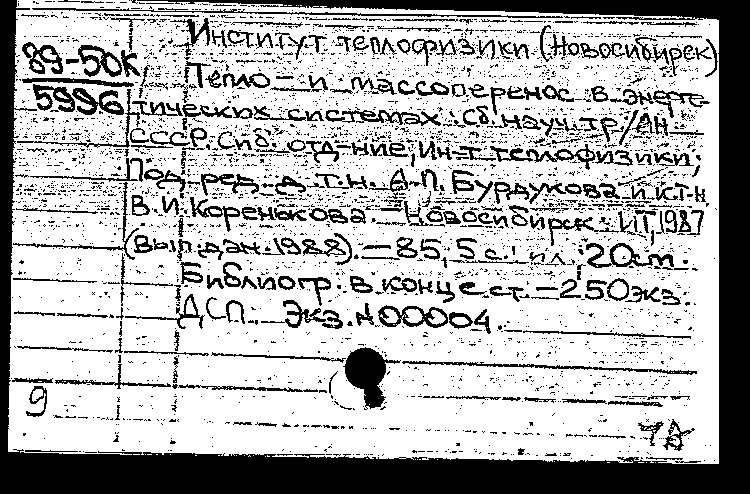 Институт теплофизики (Новосибирск)
89-50К
5996
Тепло- и массоперенос в энерге-
тических системах: Сб. науч. тр./АН
СССР. Сиб. отд-ние, Ин-т теплофизики;
Под ред. д.т.н. А.П. Бурдукова и к.т.н.
В.И. Коренькова. — Новосибирск: ИТ, 1987
(Вып. дан. 1988). — 85,5 с.: ил.; 20 см. -
Библиогр. в конце ст. — 250 экз.
ДСП. Экз. №00004.
9